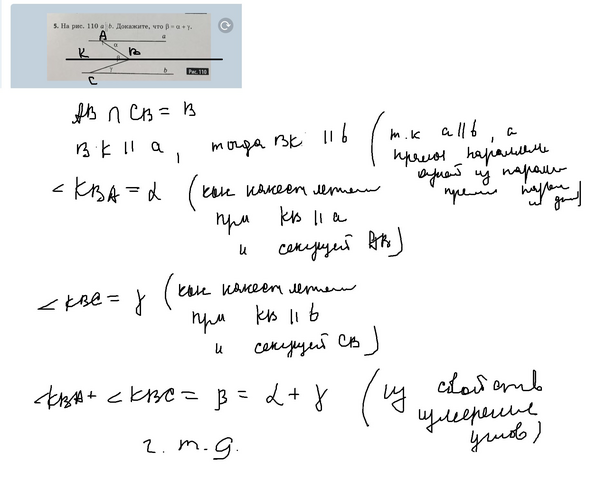 5. На рис. 110 a || b. Докажите, что β = α + γ.
A
a
α
K
B
β
γ
C
b
Рис. 110
AB ∩ CB = B
BK || a, тогда BK || b (т.к a || b, а
прямая параллел
одной из парал
<KBA = α (как накрест лежащ
при KB || a
и секущей AB)
<KBC = γ (как накрест лежащ
при KB || b
и секущей CB)
<KBA + <KBC = β = α + γ (из свойств
измерения
углов)
ч. т. д.